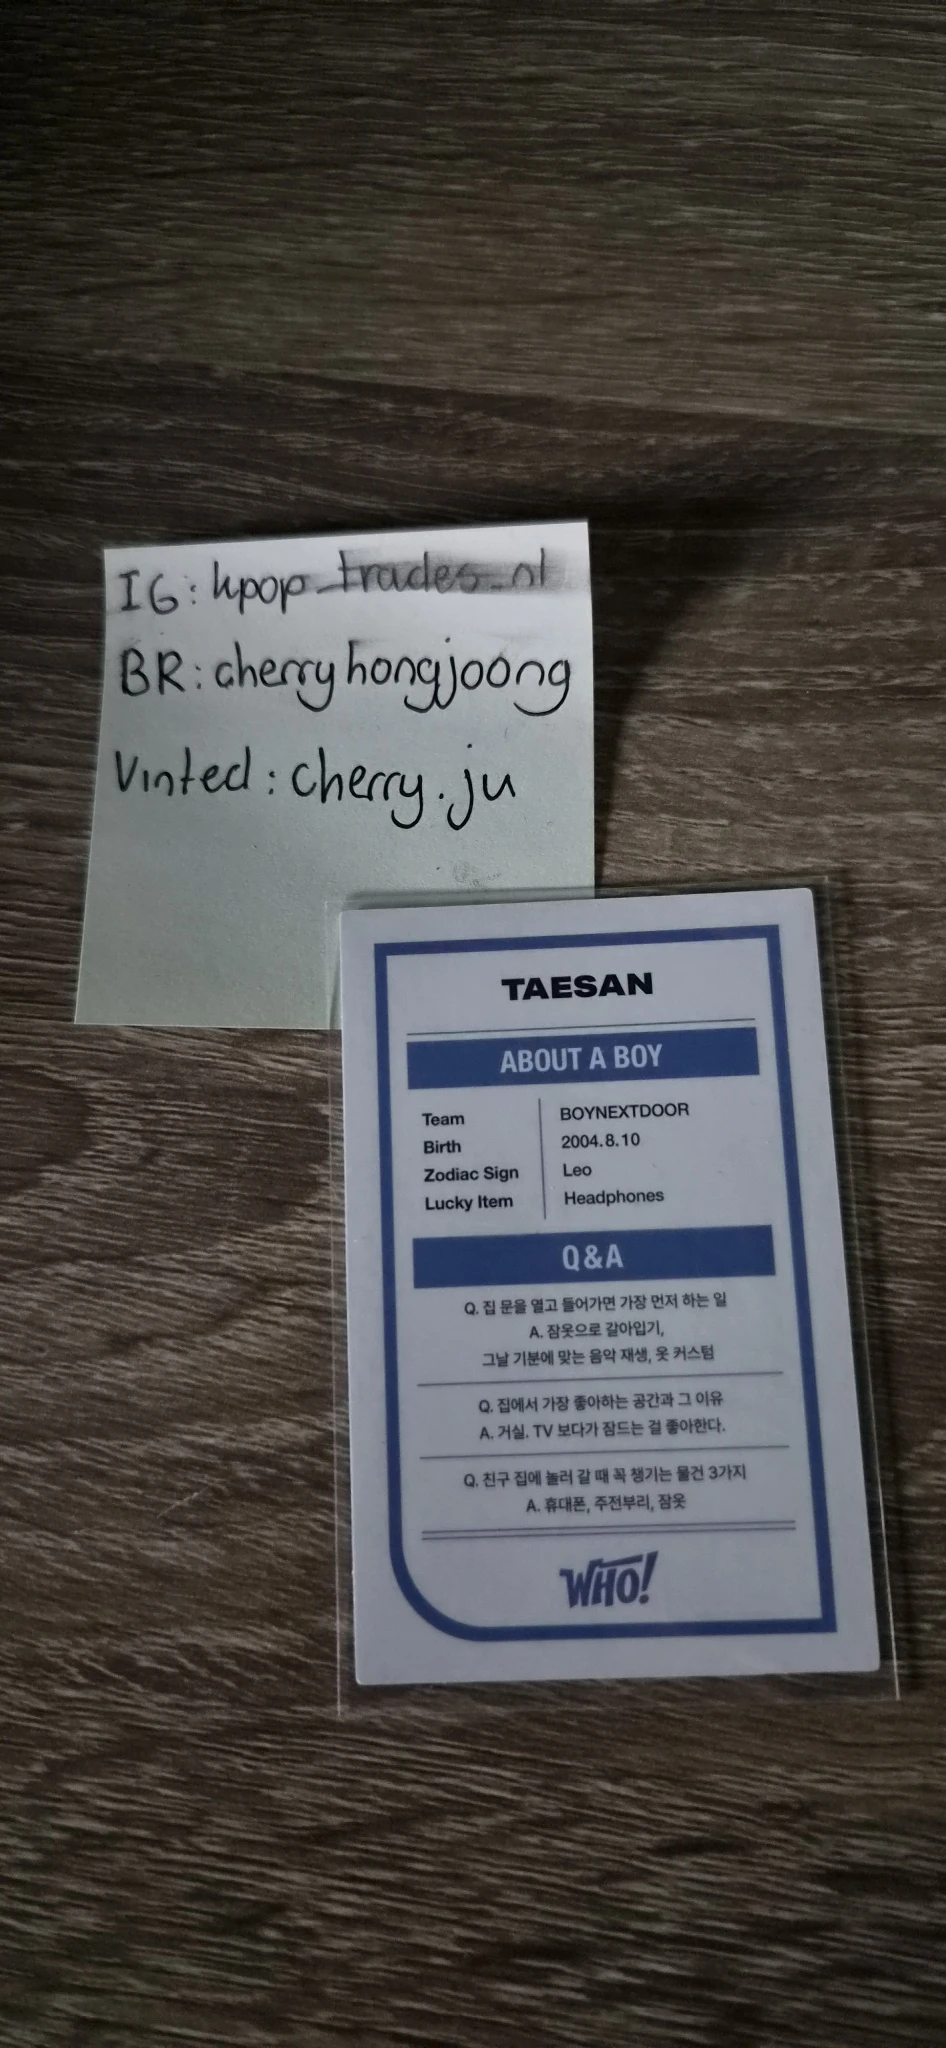 IG: kpop_trades_nl
BR: cherryhongjoong
Vinted: cherry.ju
TAESAN
ABOUT A BOY
Team BOYNEXTDOOR
Birth 2004.8.10
Zodiac Sign Leo
Lucky Item Headphones
Q&A
Q. 집 문을 열고 들어가면 가장 먼저 하는 일
A. 잠옷으로 갈아입기,
그날 기분에 맞는 음악 재생, 옷 커스텀
Q. 집에서 가장 좋아하는 공간과 그 이유
A. 거실. TV 보다가 잠드는 걸 좋아한다.
Q. 친구 집에 놀러 갈 때 꼭 챙기는 물건 3가지
A. 휴대폰, 주전부리, 잠옷
WHO!